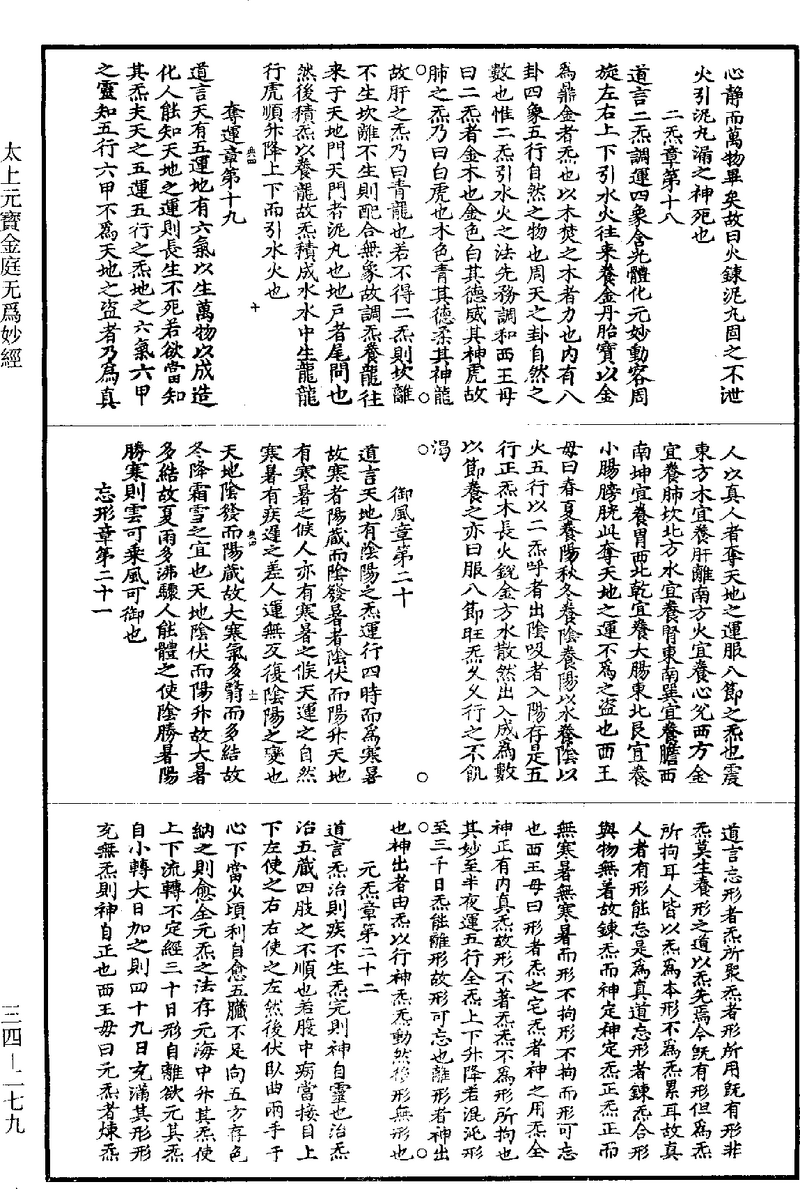 心静而萬物畢矣故曰火鍊泥九固之不泄
火引泥九漏之神死也
二炁章第十八
道言二炁調運四象含光體化元妙動容周
旋左右上下引水火往来養金丹胎寶以金
為鼎金者炁也以木焚之木者力也内有八
卦四象五行自然之物也周天之卦自然之
數也惟二炁引水火之法先務調和西王母
曰二炁者金木也金色白其德威其神虎故
肺之炁乃曰白虎也木色青其德柔其神龍
故肝之炁乃曰青龍也若不得二炁則坎離
不生坎離不生則配合無象故調炁養龍往
来于天地門天門者泥九也地戸者尾閭也
然後積炁以養龍故炁積成水水中生龍龍
行虎順升降上下而引水火也
奪運章第十九
道言天有五運地有六氣以生萬物以成造
化人能知天地之運則長生不死若欲當知
其炁夫天之五運五行之炁地之六氣六甲
之靈知五行六甲不為天地之盜者乃為真
人以真人者奪天地之運服八節之炁也震
東方木宜養肝離南方火宜養心兊西方金
宜養肺坎北方水宜養腎東南巽宜養膽西
南坤宜養胃西北乾宜養大腸東北艮宜養
小腸膀胱此奪天地之運不為之盜也西王
母曰春夏養陽秋冬養陰養陽以水養陰以
火五行以二炁呼者出陰吸者入陽存是五
行正炁木長火銳金方水散然出入成為數
以節養之亦曰服八節旺炁久久行之不飢
渴
御風章第二十
道言天地有陰陽之炁運行四時而為寒暑
故寒者陽藏而陰發暑者陰伏而陽升天地
有寒暑之候人亦有寒暑之候天運之自然
寒暑有疾遲之差人運無反復陰陽之變也
天地陰發而陽藏故大寒氣多翳而多結故
冬降霜雪之宜也天地陰伏而陽升故大暑
多結故夏雨多沸驟人能體之使陰勝暑陽
勝寒則雲可乘風可御也
忘形章第二十一
道言忘形者炁所聚炁者形所用旣有形非
炁莫生養形之道以炁先焉今旣有形但為炁
所拘耳人皆以炁為本形不為炁累耳故真
人者有形能忘是為真道忘形者鍊炁合形
與物無著故鍊炁而神定神定炁正炁正而
無寒暑無寒暑而形不拘形不拘而形可忘
也西王母曰形者炁之宅炁者神之用炁全
神正有内真炁故形不著炁炁不為形所拘也
其妙至半夜運五行全炁上下升降若混沌形
至三千日炁能離形故形可忘也離形者神出
也神出者由炁以行神炁炁動然移形無形也
元炁章第二十二
道言炁治則疾不生炁完則神自靈也治炁
治五藏四肢之不順也若腹中病當接目上
下左使之右右使之左然後伏臥曲兩手于
心下當少頃利自愈五臟不足向五方存色
納之則愈全元炁之法存元海中升其炁使
上下流轉不定經三十日形自離欲元其炁
自小轉大日加之則四十九日充滿其形形
充無炁則神自正也西王母曰元炁者煉炁
太上元寶金庭无爲妙經
三四－二七九